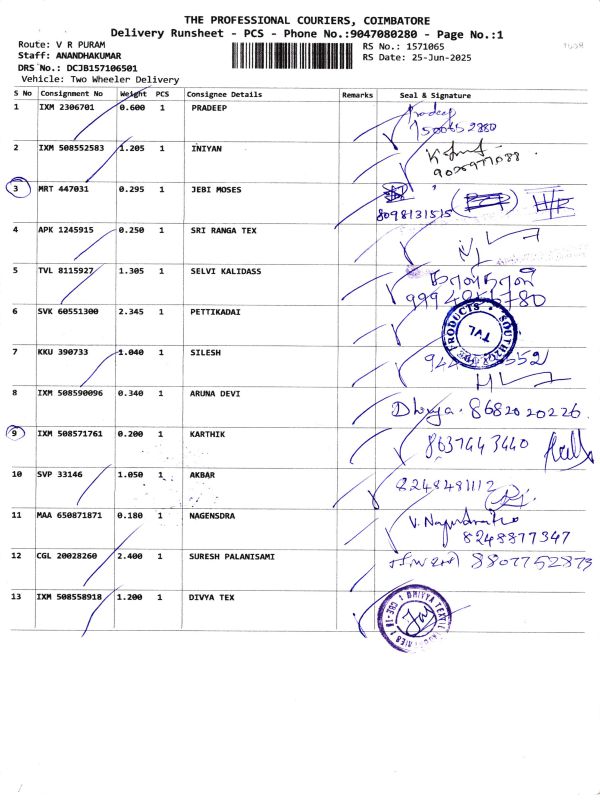 THE PROFESSIONAL COURIERS, COIMBATORE
Delivery Runsheet - PCS - Phone No.:9047080280 - Page No.:1
Route: V R PURAM
RS No.: 1571065
Staff: ANANDHAKUMAR
RS Date: 25-Jun-2025
DRS No.: DCJB157106501
Vehicle: Two Wheeler Delivery
S No Consignment No Weight PCS Consignee Details Remarks Seal & Signature
1 IXM 2306701 0.600 1 PRADEEP Pradeep
2 IXM 508552583 1.205 1 INIYAN
3 MRT 447031 0.295 1 JEBI MOSES
8098131515
4 APK 1245915 0.250 1 SRI RANGA TEX
5 TVL 8115927 1.305 1 SELVI KALIDASS
6 SVK 60551300 2.345 1 PETTIKADAI
PRODUCTS TVL
7 KKU 390733 1.040 1 SILESH
8 IXM 508590096 0.340 1 ARUNA DEVI
8682020226
9 IXM 508571761 0.200 1 KARTHIK 8637443440
10 SVP 33146 1.050 1 AKBAR 8248481112
11 MAA 650871871 0.180 1 NAGENSDRA
8248877347
12 CGL 20028260 2.400 1 SURESH PALANISAMI 8807752873
13 IXM 508558918 1.200 1 DIVYA TEX